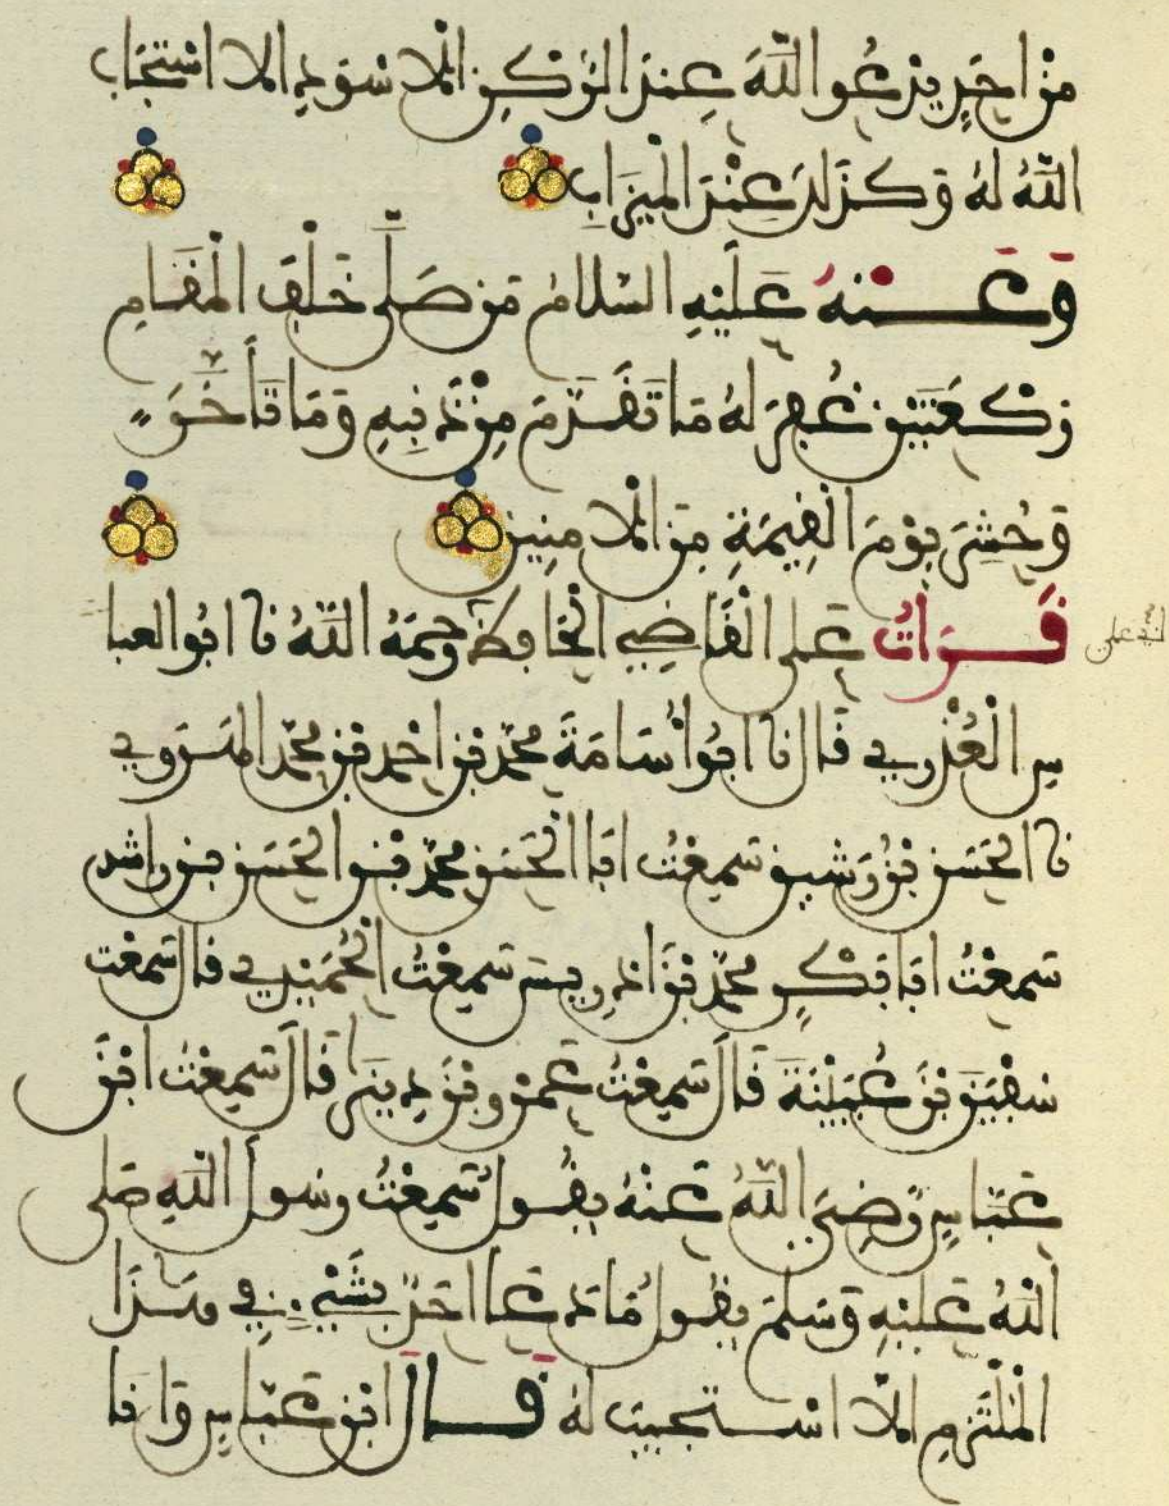 من احد يدعوا الله عند الركن الاسود الا استجاب
الله له وكذلك عند الميزاب
وعنه عليه السلام من صلى خلف المقام
ركعتين غفر له ما تقدم من ذنبه وما تأخر
وحشر يوم القيمة من الامنين
قرات على القاضي الحافظ رحمه الله نا ابو العبا
س العذري قال نا ابو أسامة محمد بن احمد بن محمد الهروي
نا الحسن بن رشيق سمعت ابا الحسن محمد بن الحسن بن راشد
سمعت ابا بكر محمد بن ادريس سمعت الحميدي قال سمعت
سفين بن عيينة قال سمعت عمرو بن دينار قال سمعت ابن
عباس رضي الله عنه يقول سمعت رسول الله صلى
الله عليه وسلم يقول ما دعا احد بشيء في هذا
الملتزم الا استجيب له قال ابن عباس وانا